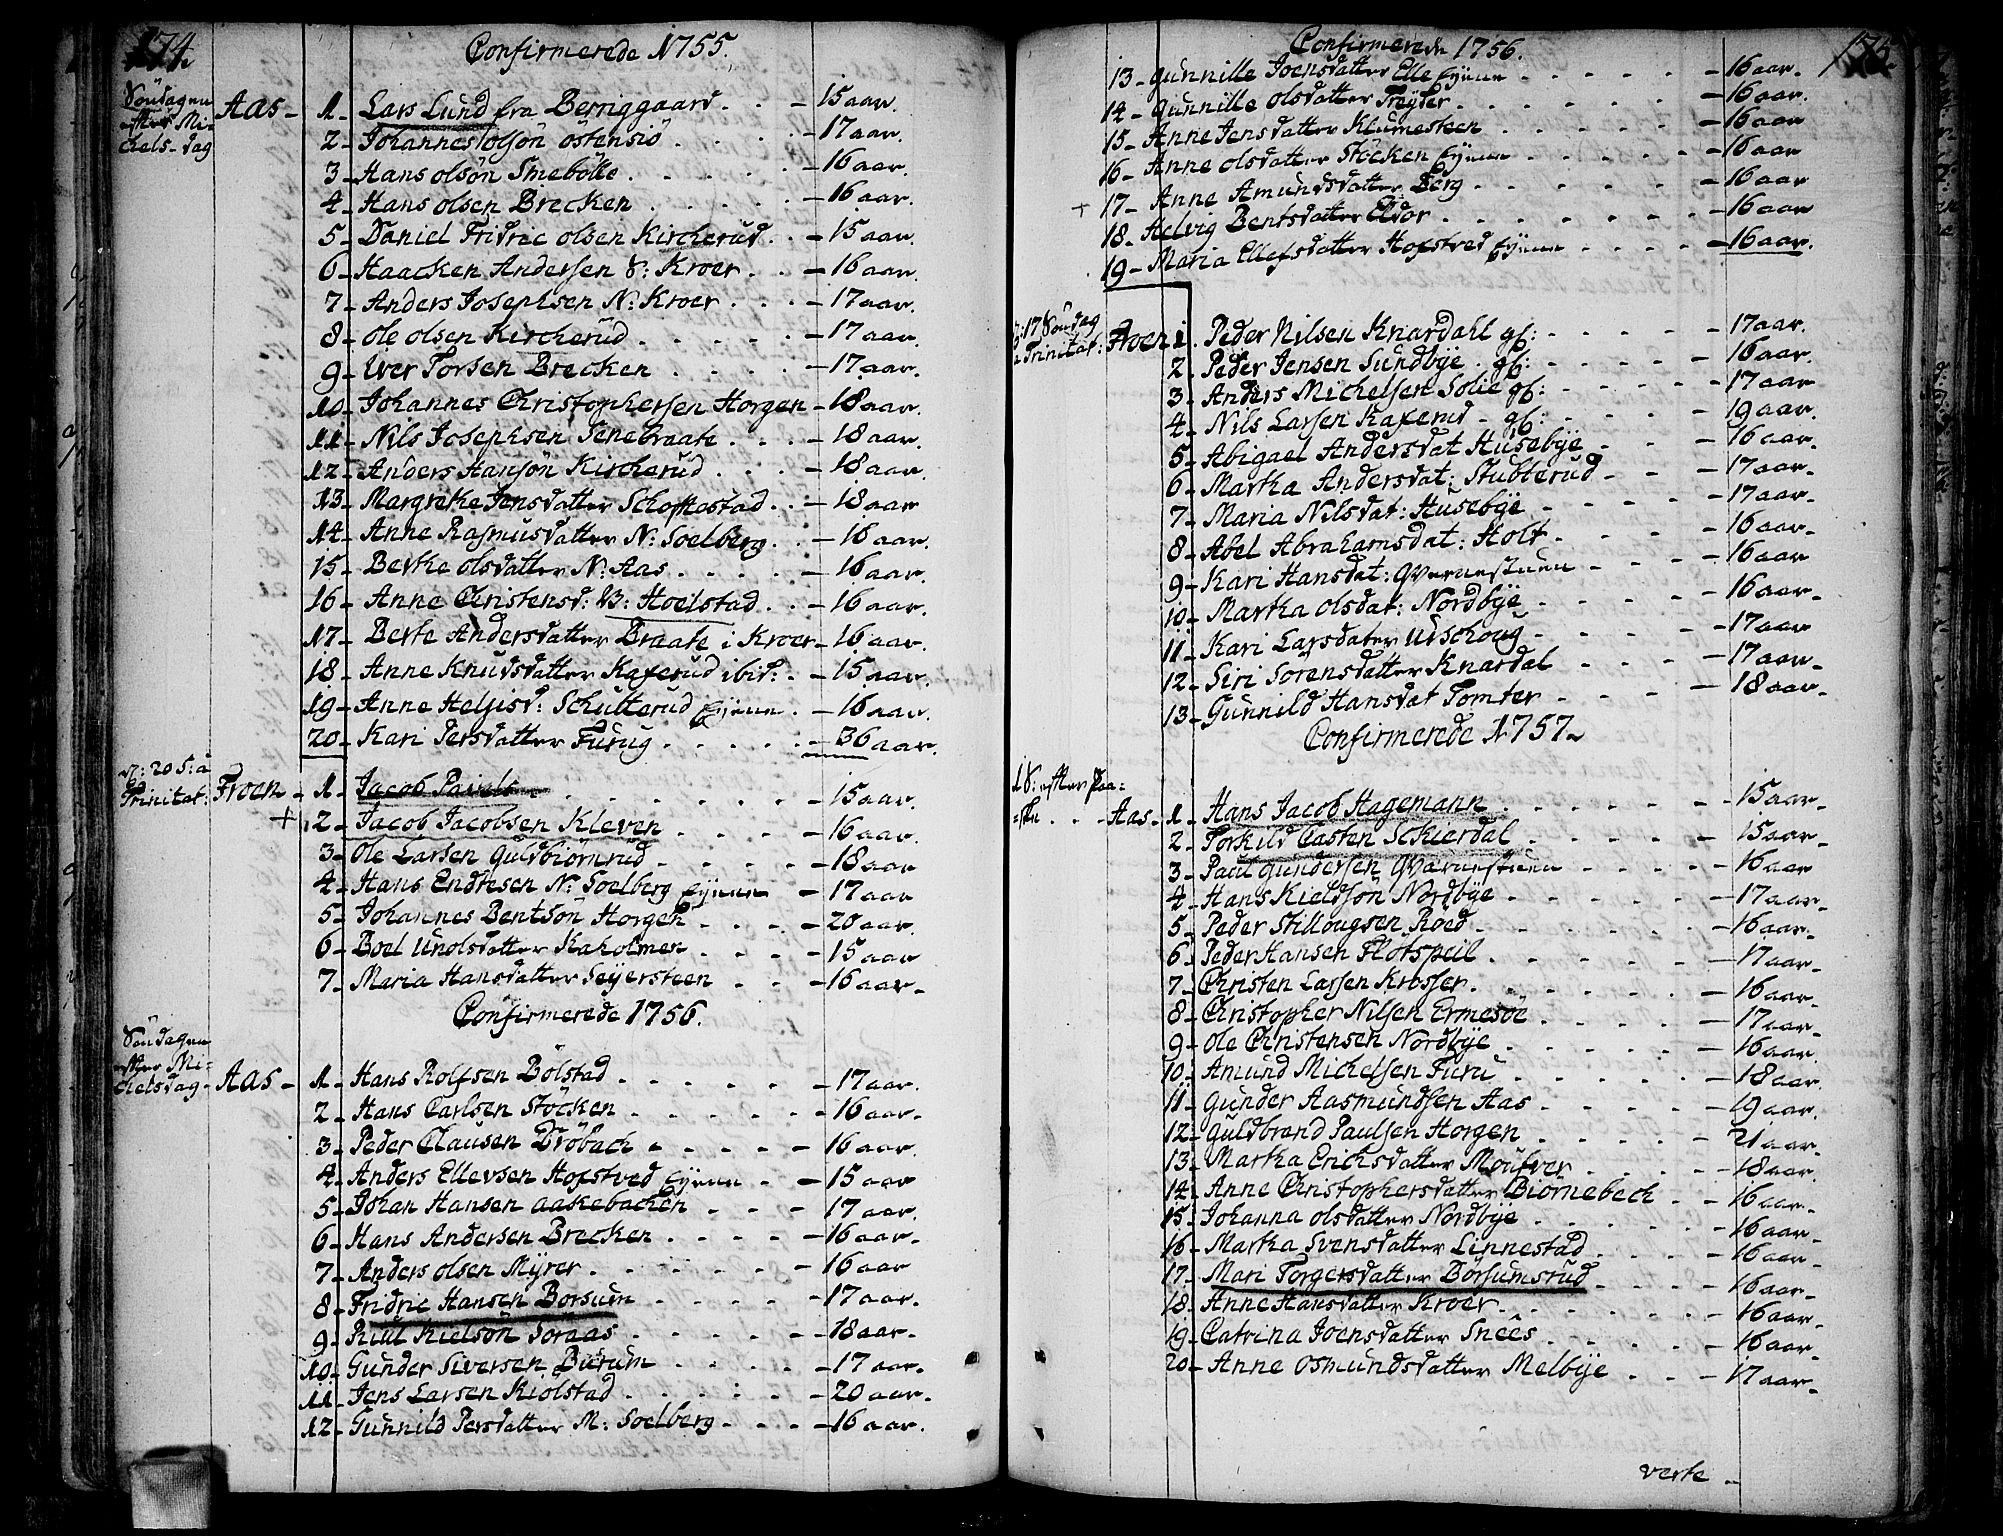 174.
Confirmerede 1755.
Söndagen
efter Mi-
chels-dag
Aas -
1 - Lars Lund fra Berriggaard - 15 aar.
2 - Johannes olsön östensiö - 17 aar.
3 - Hans olsön Smebölle - 16 aar.
4 - Hans olsen Brecken - 16 aar.
5 - Daniel Fridric olsen Kircherud - 15 aar.
6 - Haacken Andersen S: Kroer - 16 aar.
7 - Anders Josephsen N: Kroer - 17 aar.
8 - ole olsen Kircherud - 17 aar.
9 - Iver Torsen Brecken - 17 aar.
10 - Johannes Christophersen Horgen - 18 aar.
11 - Nils Josephsen Senebraate - 18 aar.
12 - Anders Hansön Kircherud - 18 aar.
13 - Margrethe Jensdatter - 18 aar
14 - Anne Rasmusdatter N: Soelberg - 16 aar.
15 - Berthe olsdatter N: Aas - 16 aar.
16 - Anne Christensd: V: Hoelstad - 16 aar.
17 - Berte Andersdatter Braate i Kroer - 16 aar.
18 - Anne Knudsdatter Kaxerud ibid: - 15 aar.
19 - Anne Helјisd: Schulterud Eyenn - 16 aar.
20 - Kari Persdatter Furug - 36 aar.
D: 20 S: a
Trinitat:
Froen -
1 - Jacob Pauls - 15 aar.
+ 2 - Jacob Jacobsen Kleven - 16 aar.
3 - Ole Larsen Guldbiörnrud - 18 aar
4 - Hans Endresen N: Soelberg Eyenn - 17 aar
5 - Johannes Bentsön Horgen - 20 aar.
6 - Boel unolsdatter Kaholmen - 15 aar
7 - Maria Hansdatter Seyersteen - 16 aar -
Confirmerede 1756.
Söndagen
efter Mi-
chelsdag -
Aas -
1 - Hans Rolfsen Bölstad - 17 aar.
2 - Hans Carlsen Stöcken - 16 aar -
3 - Peder Clausen Dröbach - 16 aar.
4 - Anders Ellevsen Hofstved Eyenn - 15 aar
5 - Johan Hansen aakebachen - 17 aar.
6 - Hans Andersen Brecken - 16 aar -
7 - Anders olsen Myrer - 16 aar
8 - Fridric Hansen Borsum - 17 aar.
9 - Kielsön Soraas - 18 aar -
10 - Gunder Siversen Burum - 17 aar -
11 - Jens Larsen Kiolstad - 20 aar -
12 - Gunnild Persdatter M: Soelberg - 16 aar.
175.
Confirmerede 1756.
13 - Gunnille Joensdatter Elle Eyenn - 16 aar.
14 - Gunnille olsdatter Frÿser - 16 aar.
15 - Anne Jensdatter Klumesteen - 16 aar
16 - Anne olsdatter Stöcken Eyenn - 16 aar
+ 17 - Anne Amundsdatter Berg - 16 aar
18 - Helvig Bentsdatter Eldor - 16 aar
19 - Maria Ellefsdatter Hofstved Eyenn - 16 aar.
D: 17 Söndag
a Trinitat:
Froen
1 - Peder Nilsen Knardahl gf: - 17 aar.
2 - Peder Jensen Sundbye gf: - 16 aar.
3 - Anders Michelsen Solie gf: - 17 aar
4 - Nils Larsen Kaxerud - gf: - 19 aar.
5 - Abigael Andersdat Husebye - 16 aar.
6 - Martha Andersdat: Stubberud - 17 aar.
7 - Maria Nilsdat: Husebye - 17 aar -
8 - Abel Abrahamsdat: Holt - 16 aar -
9 - Kari Hansdat: Qvernestuen - 16 aar
10 - Martha olsdat: Nordbye - 16 aar -
11 - Kari Larsdater Urschoug - 17 aar
12 - Siri Sorensdatter Knardal - 17 aar -
13 - Gunnild Hansdat Tomter - 18 aar -
Confirmerede 1757 -
1 S: efter Paa-
=ske
Aas -
1 - Hans Jacob Hagemann - 15 aar -
2 - Torkild Casten Schierdal - 15 aar -
3 - Paul Gundersen Qvernestuen - 16 aar
4 - Hans Kieldson Nordbye - 17 aar -
5 - Peder Stillougsen Roed - 16 aar -
6 - Peder Hansen Flotspeil - 17 aar -
7 - Christen Larsen Krosser - 16 aar -
8 - Christopher Nilsen Ermesöe - 17 aar -
9 - Ole Christensen Nordbye - 16 aar.
10 - Amund Michelsen Furu - 18 aar.
11 - Gunder Aasmundsen Aas - 19 aar.
12 - Guldbrand Paulsen Horgen - 21 aar -
13 - Martha Erichsdatter - 18 aar.
14 - Anne Christophersdatter Biörnebech - 16 aar.
15 - Johanna olsdatter Nordbye - 16 aar -
16 - Martha Svensdatter Linnestad - 16 aar -
17 - Mari Torgersdatter Börsumsrud - 16 aar -
18 - Anne Hansdatter Kroer - 16 aar -
19 - Catrina Joensdatter Snees - 16 aar -
20 - Anne Osmundsdatter Melbye - 17 aar -
verte -